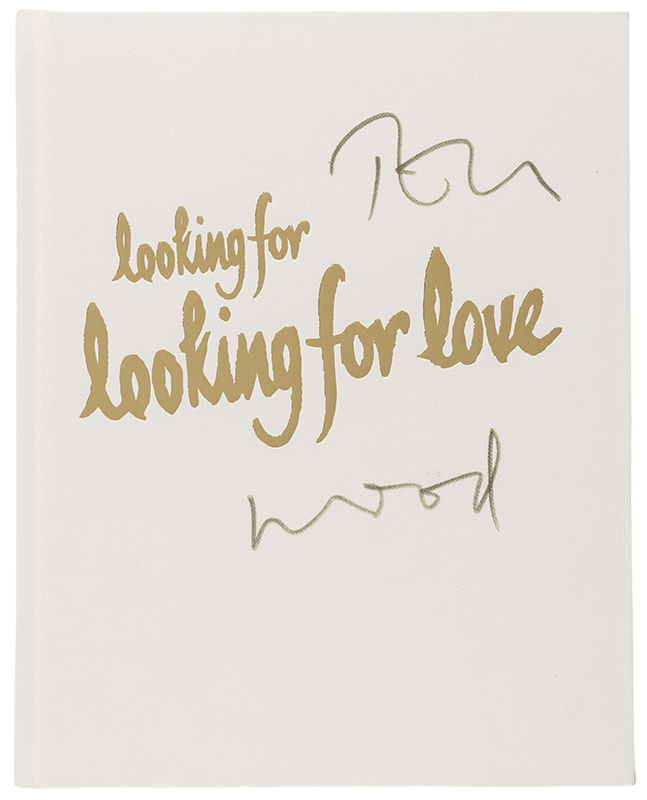 Tom
looking for
looking for love
wood